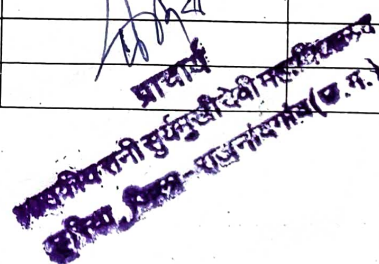 प्राचार्य
शासकीय रानी सुर्यमुखी देवी महाविद्यालय
छुरिया, जिला - राजनांदगांव (छ.ग.)